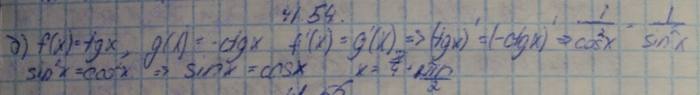 41.54.
б) f(x) = tgx, g(x) = -ctgx f'(x) = g'(x) => (tgx)' = (-ctgx)' => 1/cos²x = 1/sin²x
sin²x = cos²x => sinx = cosx x = π/4 + πn/2